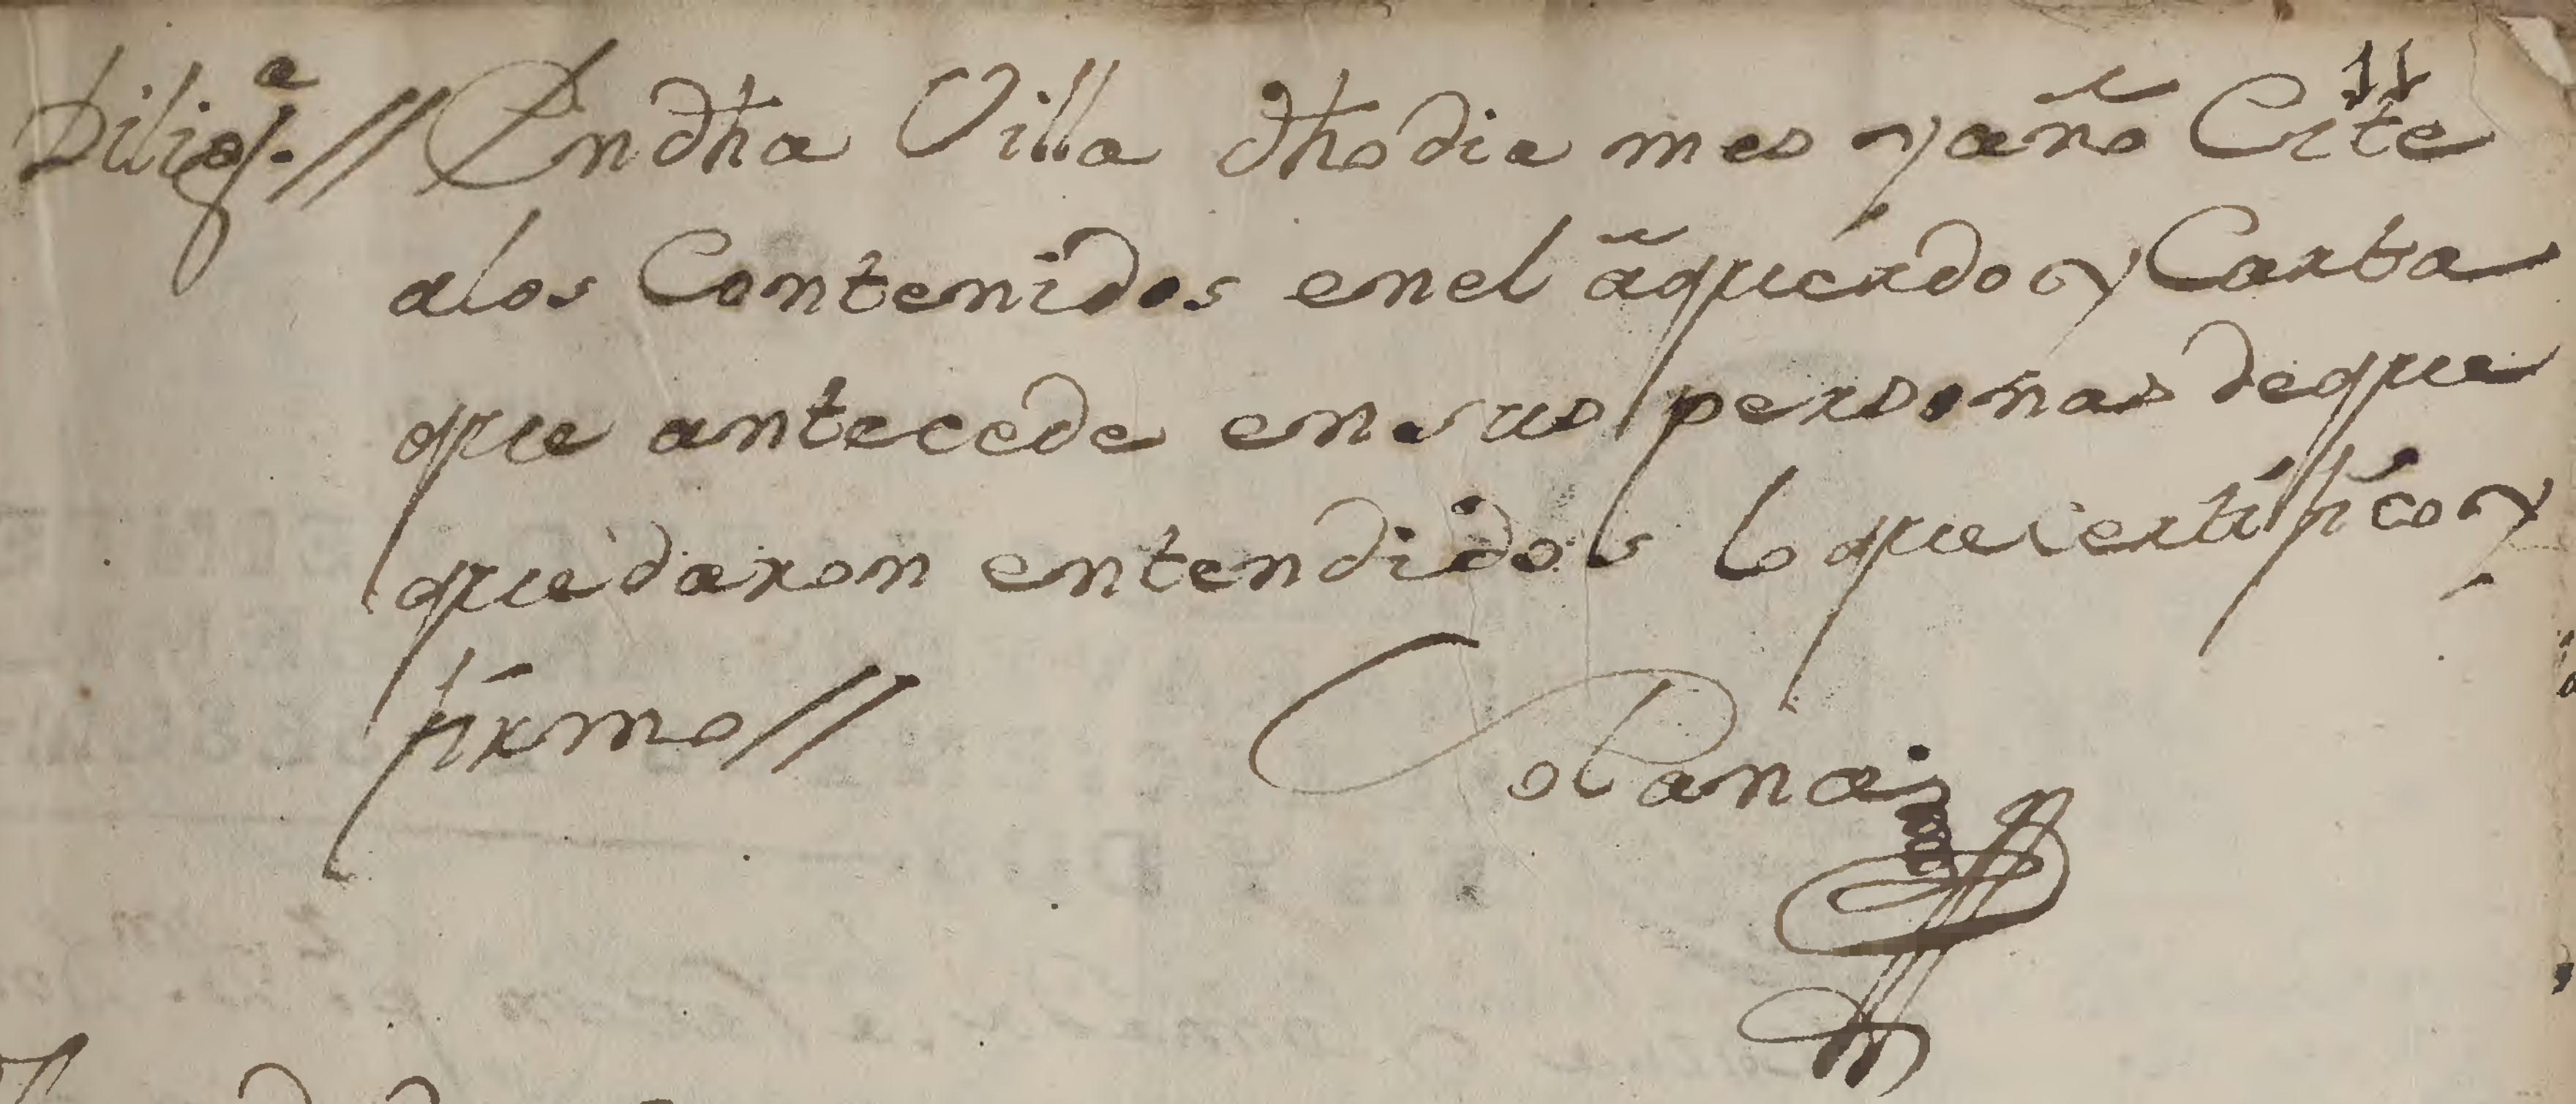 11
Dilig.ª // En dha Villa dho dia mes y año Cite
a los Contenidos en el aquerdo y Carta
que antecede en sus personas de que
quedaron entendidos lo que certifico y
firmo //
Solana